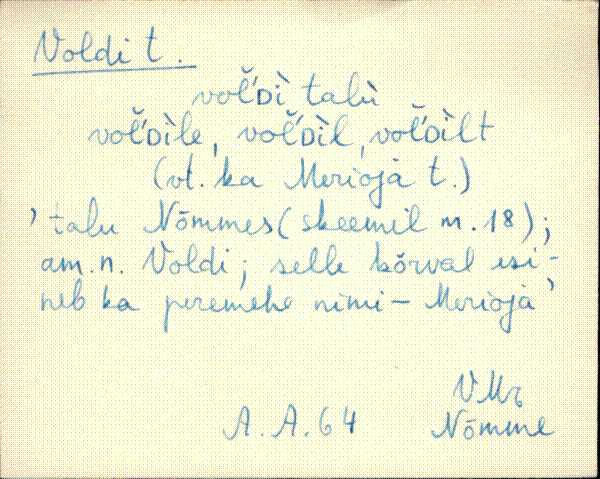 Voldi t.
vol̆'ᴅì talù
vol̆'ᴅìle, vol̆'ᴅìl, vol̆'ᴅìlt
(vt. ka Meriojà t.)
'talu Nõmmes (skeemil m. 18);
am.n. Voldi; selle kõrval esi-
neb ka peremehe nimi – Meriojà'
VMr
A. A. 64 Nõmme